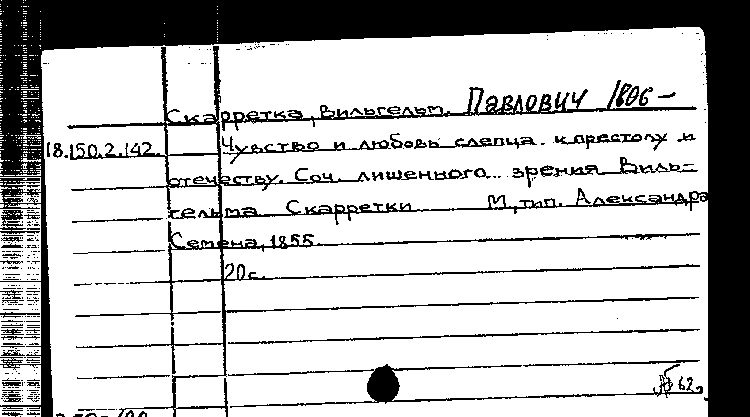 Скарретка, Вильгельм. Павлович 1806 –
18.150.2.142. Чувство и любовь слепца. к престолу и
отечеству. Соч. лишенного зрения Виль-
гельма Скарретки М, тип. Александра
Семена, 1855.
20 с.
62